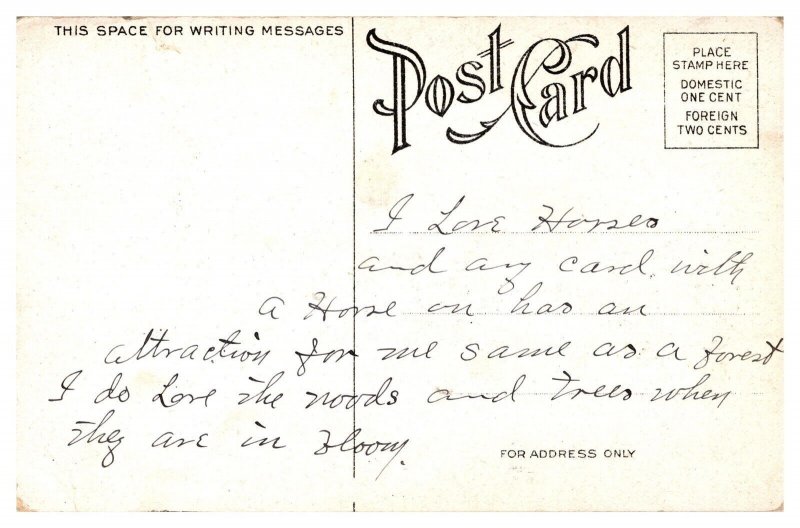 THIS SPACE FOR WRITING MESSAGES
Post Card
PLACE
STAMP HERE
DOMESTIC
ONE CENT
FOREIGN
TWO CENTS
I Love Horses
and any card with
a Horse on has an
attraction for me same as a Forest
I do Love the woods and trees when
they are in Bloom.
FOR ADDRESS ONLY